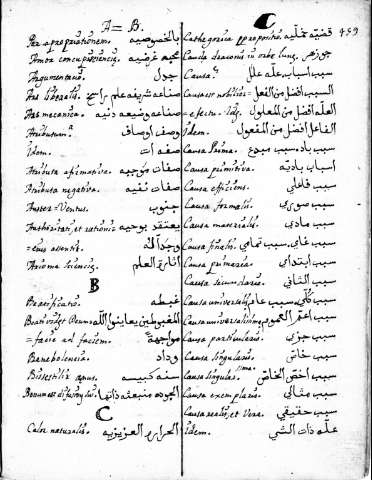 A = B.
Per apropriationem. بالخصوصيه
Amor concupiscenciæ. محبه غرضيه
Argumentatio. جدل
Ars liberalis. صناعه شريفه علم
Ars mecanica. صناعه وضيعه دنيه
Atributum. وصف اوصاف
Idem. صفه ات
Atributa afirmativa. صفات موجبه
Atributa negativa. صفات نفيه
Auster = Ventus. جنوب
Authoritas, et rationis يعتقد بوحيه
وجداله
Axioma sciencię. العلم
B
غبطه
Beati videt Deum المغبوطين يعاينوا الله
= facie ad faciem. مواجهة
Benebolencia. وداد
Bisestilis سنه كبيسه
Bonum est الجوده منبعثه ذاتها
C
Calor naturalis. الحراره العزيزيه
C
459
Cathegorica propositio. قضيه حمليه
Cauda draconis in orbe lunę. جوزهر
Causa سبب اسباب عله علل
Causa est nobilior السبب افضل من الفعل
= efectu. العله افضل من المعلول
Idem. الفاعل افضل من المفعول
Causa Prima. سبب مبدع
Causa primitiva. اسباب باديه
Causa eficiens. سبب فاعلي
Causa formalis. سبب صوري
Causa materialis. سبب مادي
Causa finalis. سبب غايي سبب تمامي
Causa primaria. سبب ابتداي
Causa secundaria. سبب الثاني
Causa universalis. سبب كلي سبب عام
Causa universalissima. سبب اعم العموم
Causa particularis. سبب جزي
Causa singularis. سبب خاص
Causa singularis سبب اخص الخاص
Causa exemplaris. سبب مثالي
Causa realis, et Vera. سبب حقيقي
Idem. عله ذات الشي